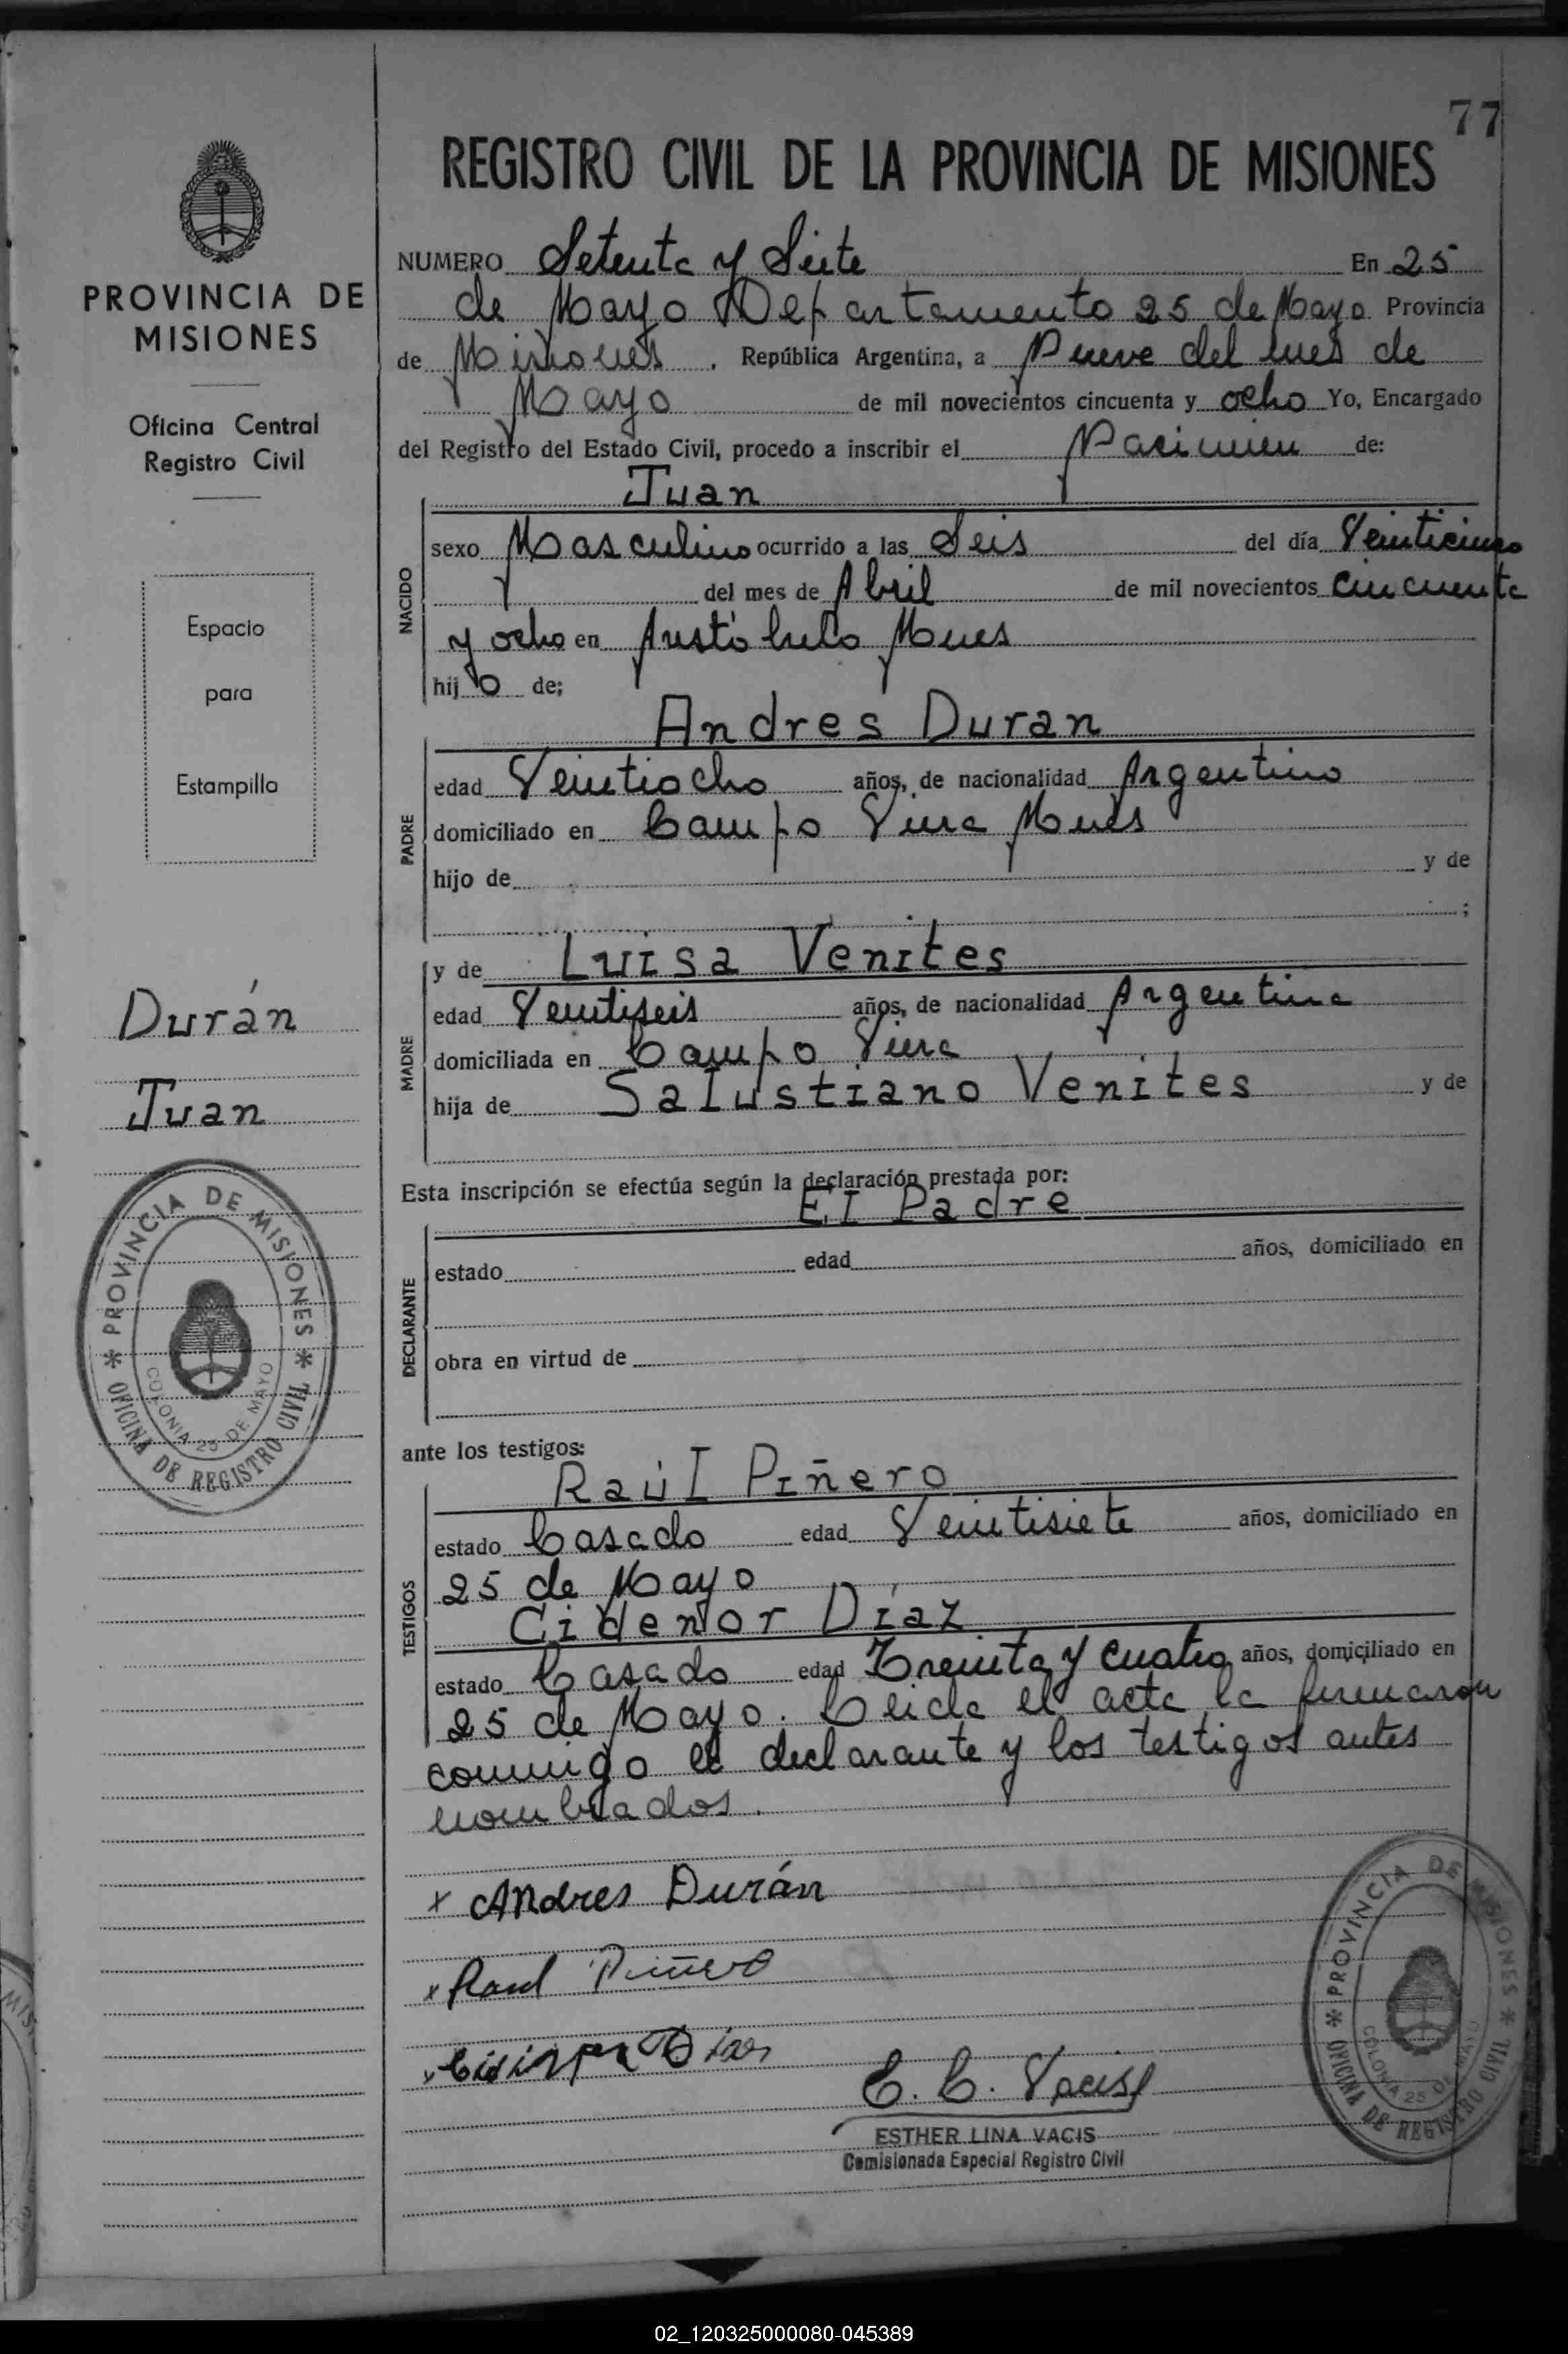 77
REGISTRO CIVIL DE LA PROVINCIA DE MISIONES
PROVINCIA DE
MISIONES
Oficina Central
Registro Civil
Espacio
para
Estampilla
Durán
Juan
PROVINCIA DE MISIONES
OFICINA DE REGISTRO CIVIL
COLONIA 25 DE MAYO
NUMERO Setenta y Siete En 25
de Mayo Departamento 25 de Mayo Provincia
de Misiones . República Argentina, a Nueve del mes de
Mayo de mil novecientos cincuenta y ocho Yo, Encargado
del Registro del Estado Civil, procedo a inscribir el Nacimien de:
Juan
NACIDO
sexo Masculino ocurrido a las Seis del día Veinticinco
del mes de Abril de mil novecientos cincuenta
y ocho en Aristóbulo Mnes
hijo de;
Andres Duran
PADRE
edad Veintiocho años, de nacionalidad Argentino
domiciliado en Campo Viera Mnes
hijo de y de
;
y de Luisa Venites
MADRE
edad Veintiseis años, de nacionalidad Argentina
domiciliada en Campo Viera
hija de Salustiano Venites y de
Esta inscripción se efectúa según la declaración prestada por:
El Padre
DECLARANTE
estado edad años, domiciliado en
obra en virtud de
ante los testigos:
Raúl Piñero
TESTIGOS
estado Casado edad Veintisiete años, domiciliado en
25 de Mayo
Cidenor Díaz
estado Casado edad Treinta y cuatro años, domiciliado en
25 de Mayo. Leida el acta la firmaron
conmigo el declarante y los testigos antes
nombrados.
x Andres Durán
x Raul Piñero
x Díaz
E. L. Vacis
ESTHER LINA VACIS
Comisionada Especial Registro Civil
PROVINCIA DE MISIONES
OFICINA DE REGISTRO CIVIL
COLONIA 25 DE MAYO
02_120325000080-045389